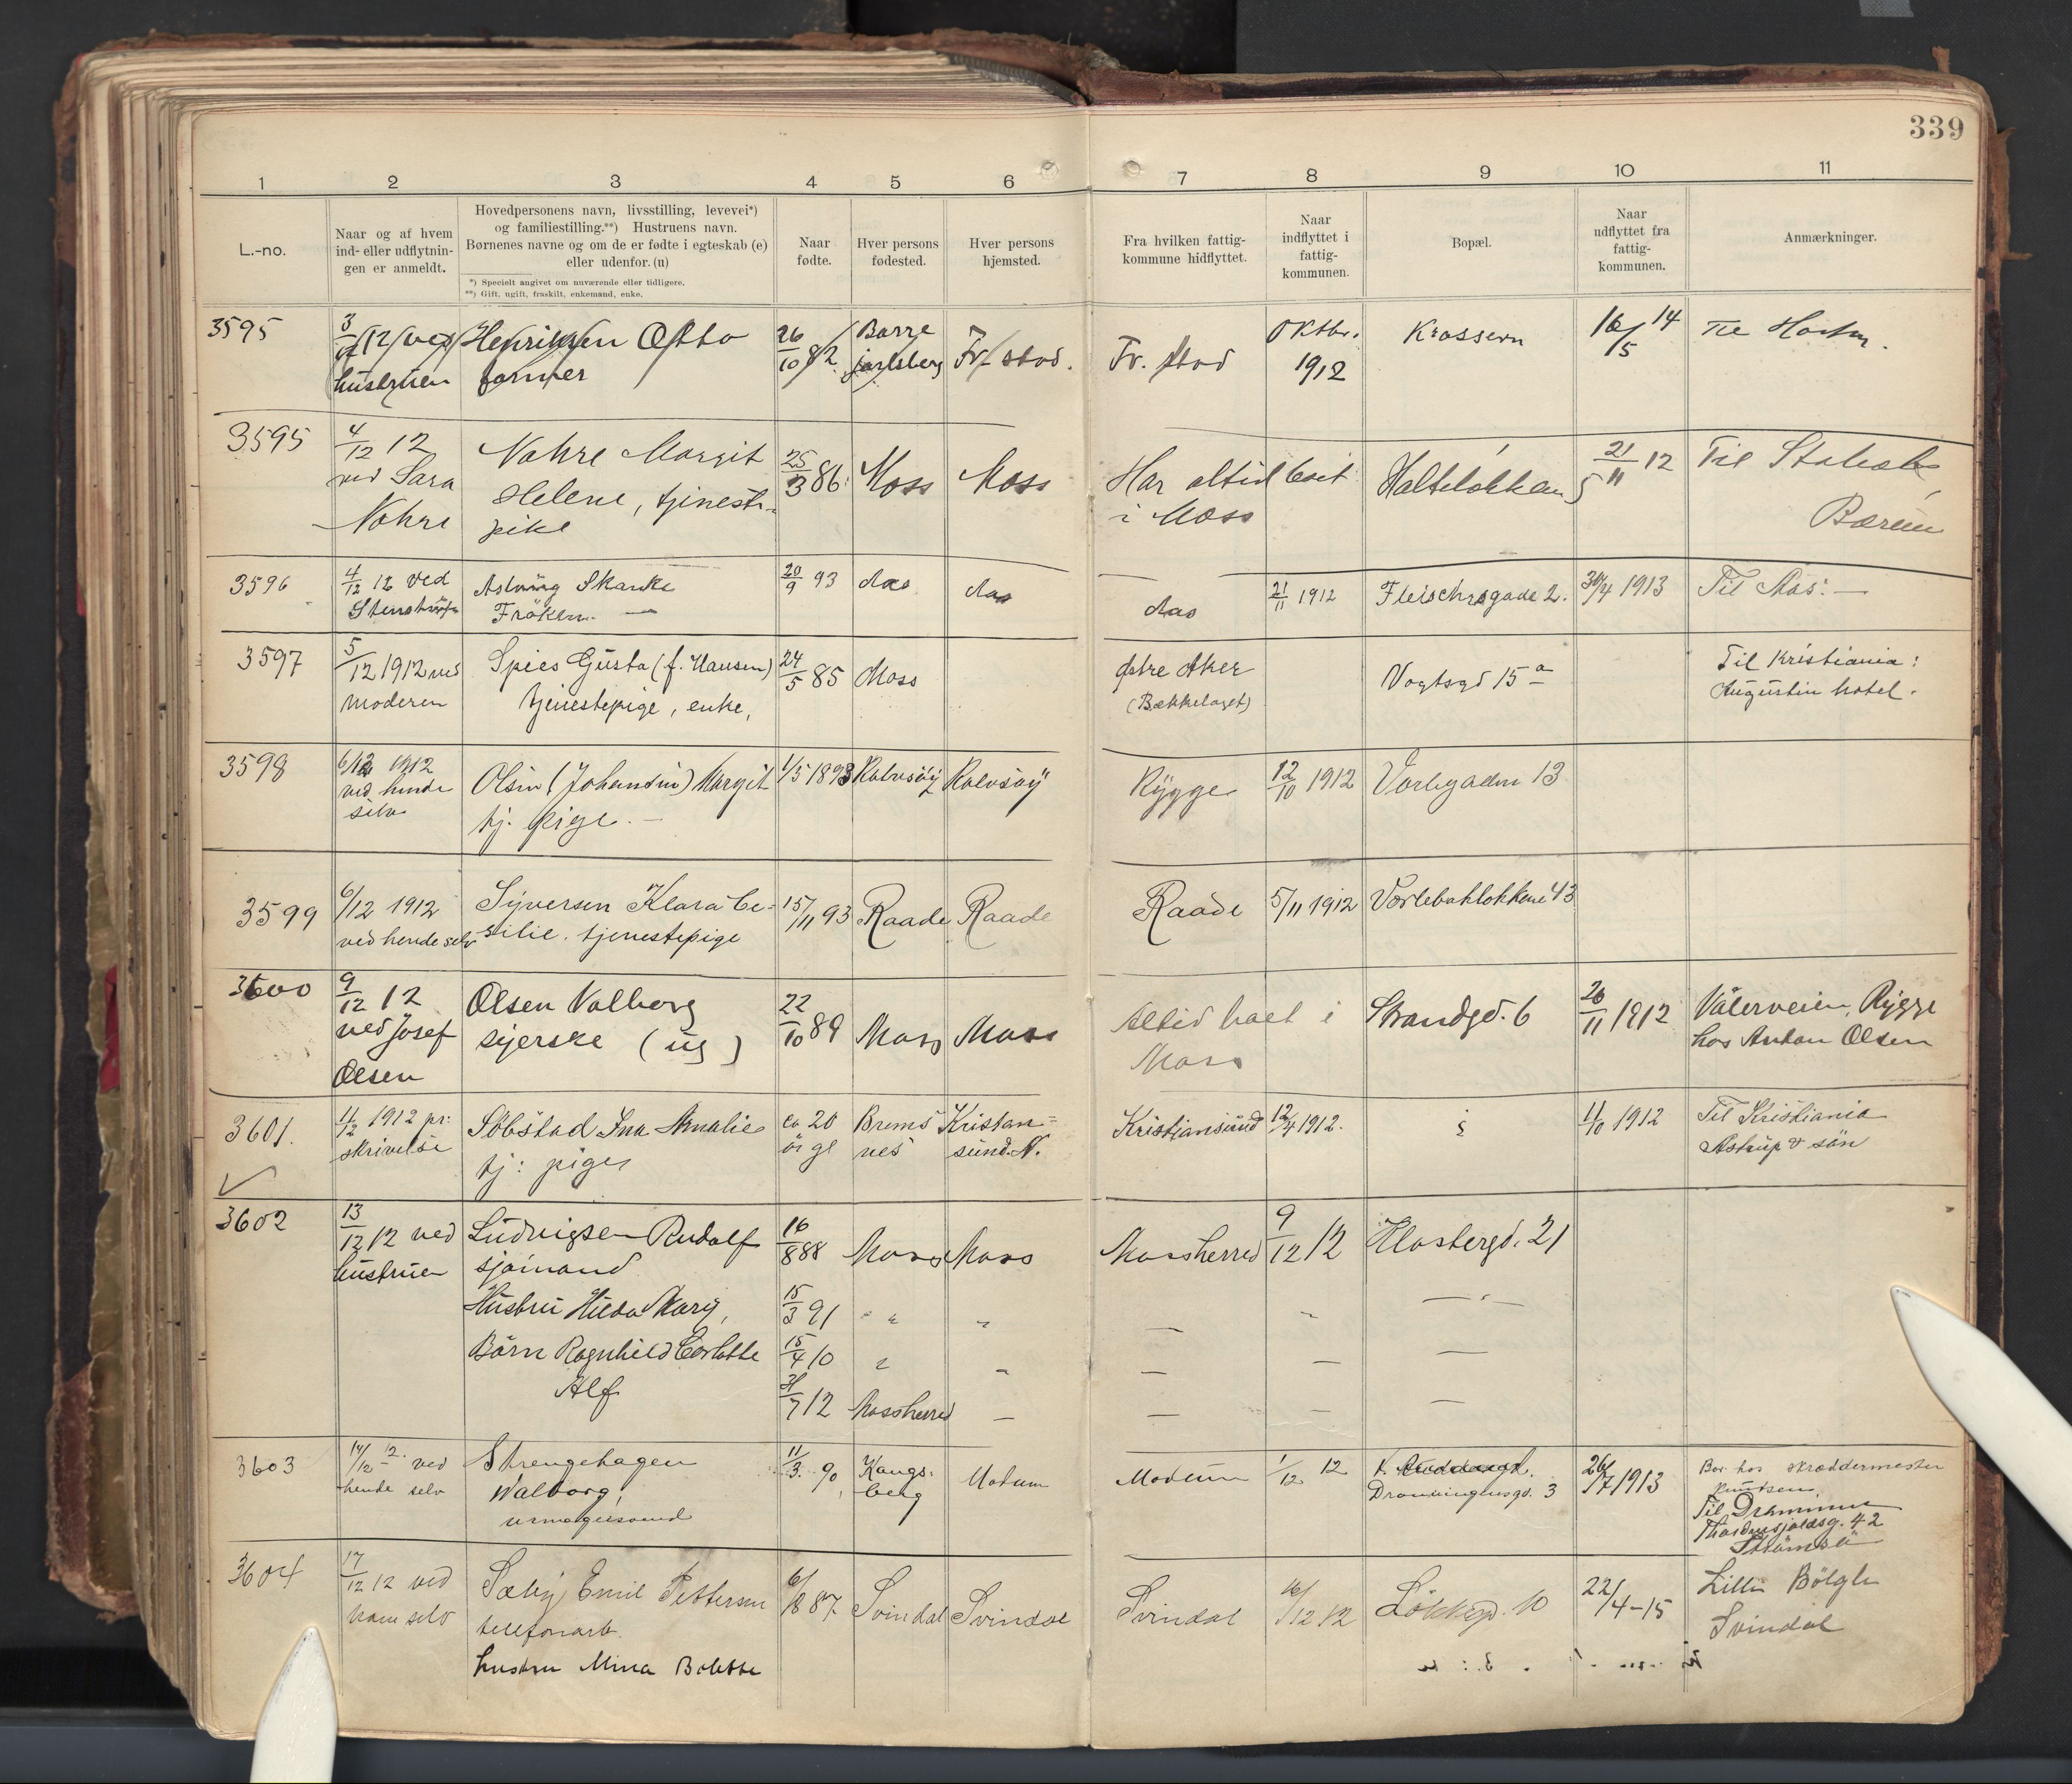 339
1 2 3 4 5 6 7 8 9 10 11
L.-no.
Naar og af hvem
ind- eller udflytnin-
gen er anmeldt.
Hovedpersonens navn, livsstilling, levevei*)
og familiestilling.**) Hustruens navn.
Børnenes navne og om de er fødte i egteskab (e)
eller udenfor. (u)
*) Specielt angivet om nuværende eller tidligere.
**) Gift, ugift, fraskilt, enkemand, enke.
Naar
fødte.
Hver persons
fødested.
Hver persons
hjemsted.
Fra hvilken fattig-
kommune hidflyttet.
Naar
indflyttet i
fattig-
kommunen.
Bopæl.
Naar
udflyttet fra
fattig-
kommunen.
Anmærkninger.
3595
3/12 12 ved
hustruen
Henriksen Otto
former
26/10 82
Borre
jarlsberg
Fr. stad.
Fr. stad
Oktbr.
1912
Krossern
16/5 14
Til Horten.
3595
4/12 12
ved Sara
Nohre
Nohre Margit
Helene, tjeneste-
pike
25/3 86
Moss
Moss
Har altid boet
i Moss
21/11 12
Til Stabæk
Bærum
3596
4/12 12 ved
Skanke
Frøken
20/9 93
Aas
Aas
Aas
21/11 1912
Fleischersgade 2.
30/4 1913
Til Aas.
3597
5/12 1912 ved
moderen
Spies Gusta (f. Hansen)
tjenestepige, enke,
24/5 85
Moss
Østre Aker
(Bækkelaget)
Vogtsgd 15 a
Til Kristiania:
Augustin hotel.
3598
6/12 1912
ved hende
selv
Olsen (Johansen) Margit
tj. pige.
1/5 1893
Kalvsøy
Kalvsøy
Rygge
12/10 1912
Vorlegaden 13
3599
6/12 1912
ved hende selv
Syversen Klara Ce-
silie. tjenestepige
15/11 93
Raade
Raade
Raade
5/11 1912
43
3600
9/12 12
ved Josef
Olsen
Olsen Valborg
syerske (ug)
22/10 89
Moss
Moss
Altid boet i
Moss
Strandgd. 6
26/11 1912
Vålerveien, Rygge
hos Anton Olsen
3601.
11/12 1912 pr.
skrivelse
Søbstad Ina Amalie
tj: pige
ca 20
år gl
Brems
nes
Kristian-
sund. N.
Kristjansund
12/4 1912.
?
11/10 1912
Til Kristiania
Astrup & søn
3602
13/12 12 ved
hustruen
Ludvigsen Rudolf
sjømand
16/8 88
Moss
Moss
Mossherred
9/12 12
Klostergd. 21
Hustru Hilda Mary,
15/3 91
" "
"
Børn Ragnhild Charlotte
15/4 10
"
"
Alf
31/7 12
Mossherred
3603
14/12 12. ved
hende selv
Strengehagen
Walborg,
11/3. 90
Kongs-
berg
Modum
Modum
1/12 12
Dronningensgd. 3
26/7 1913
Bor hos skræddermester
Knutsen
Til Drammen
Thordensjoldsg. 42
Strømsø
3604
17/12 12 ved
ham selv
Sæby Emil Pettersen
telefonarb.
hustru Mina Bolette
6/8 87.
Svindal
Svindal
Svindal
16/12 12
Løkkegd. 10
22/4-15
Lille Bølgle
Svindal